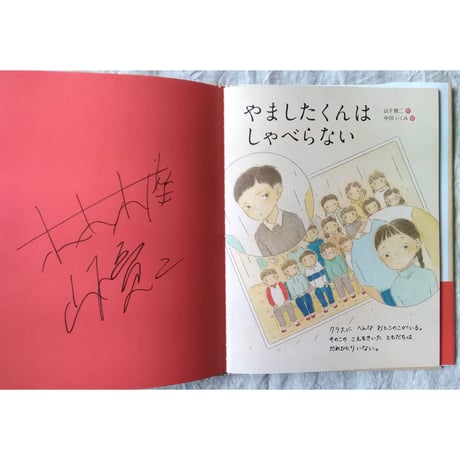 山下賢二
やましたくんは
しゃべらない
山下賢二 作
中田いくみ 絵
クラスに へんな おとこのこがいる。
そのこの こえをきいた ともだちは
だれひとり いない。